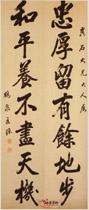 忠厚留有餘地步
和平養不盡天機